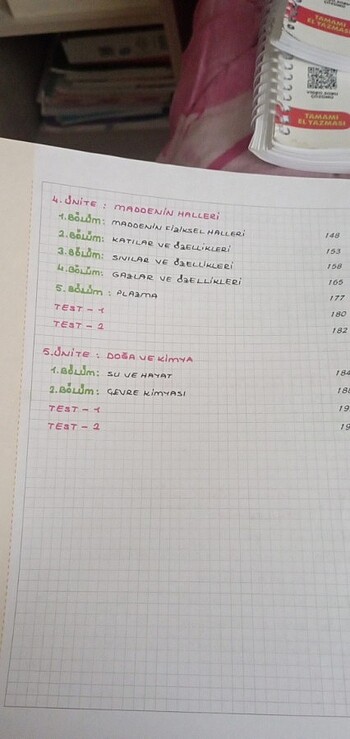 TAMAMI
EL YAZMASI
VIDEO SORU
ÇÖZÜMÜ
TAMAMI
EL YAZMASI
4.ÜNİTE : MADDENİN HALLERİ
1.BÖLÜM: MADDENİN FİZİKSEL HALLERİ 148
2.BÖLÜM: KATILAR VE ÖZELLİKLERİ 153
3.BÖLÜM: SIVILAR VE ÖZELLİKLERİ 158
4.BÖLÜM: GAZLAR VE ÖZELLİKLERİ 165
5.BÖLÜM : PLAZMA 177
TEST - 1 180
TEST - 2 182
5.ÜNİTE : DOĞA VE KİMYA
1.BÖLÜM: SU VE HAYAT 184
2.BÖLÜM: ÇEVRE KİMYASI
TEST - 1
TEST - 2